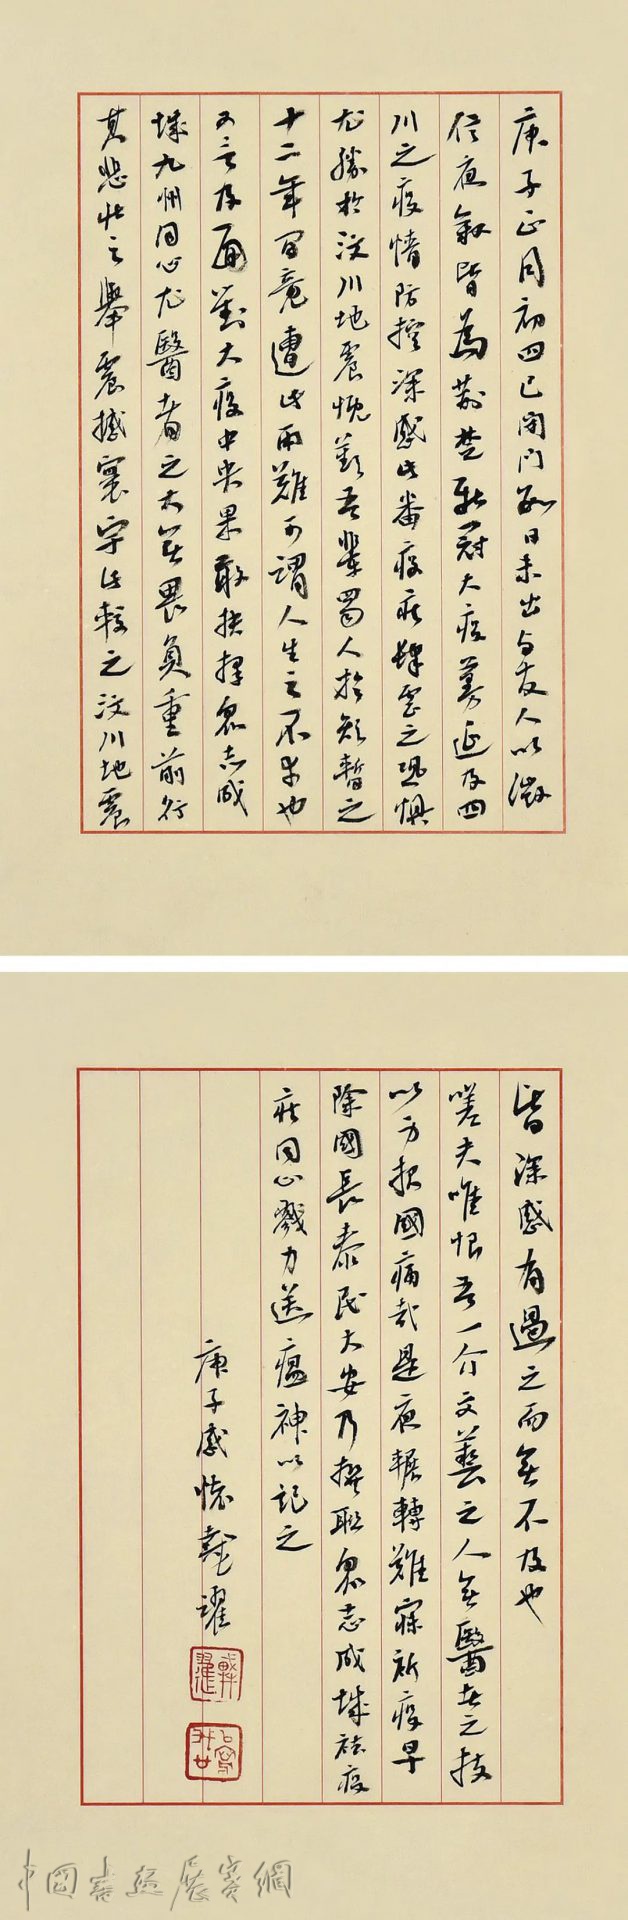 庚子正月初四已闭門數日未出与友人以微
信夜叙皆為荆楚新冠大疫蔓延及四
川之疫情防控深感此番疫疾肆虐之恐惧
尤勝於汶川地震慨歎吾輩蜀人於短暫之
十二年間竟遭此兩難可謂人生之不幸也
又言及面對大疫中央果敢抉擇眾志成
城九州同心尤醫者之大無畏負重前行
其悲壮之舉震撼寰宇此較之汶川地震
皆深感有過之而無不及也
嗟夫唯恨吾一介文藝之人無醫者之技
以力报國痛哉是夜輾轉難寐祈疫早
除國長泰民大安乃撰联眾志成城祛疫
疾同心戮力送瘟神以記之
庚子感懷 戴躍
中國書畫展賽網